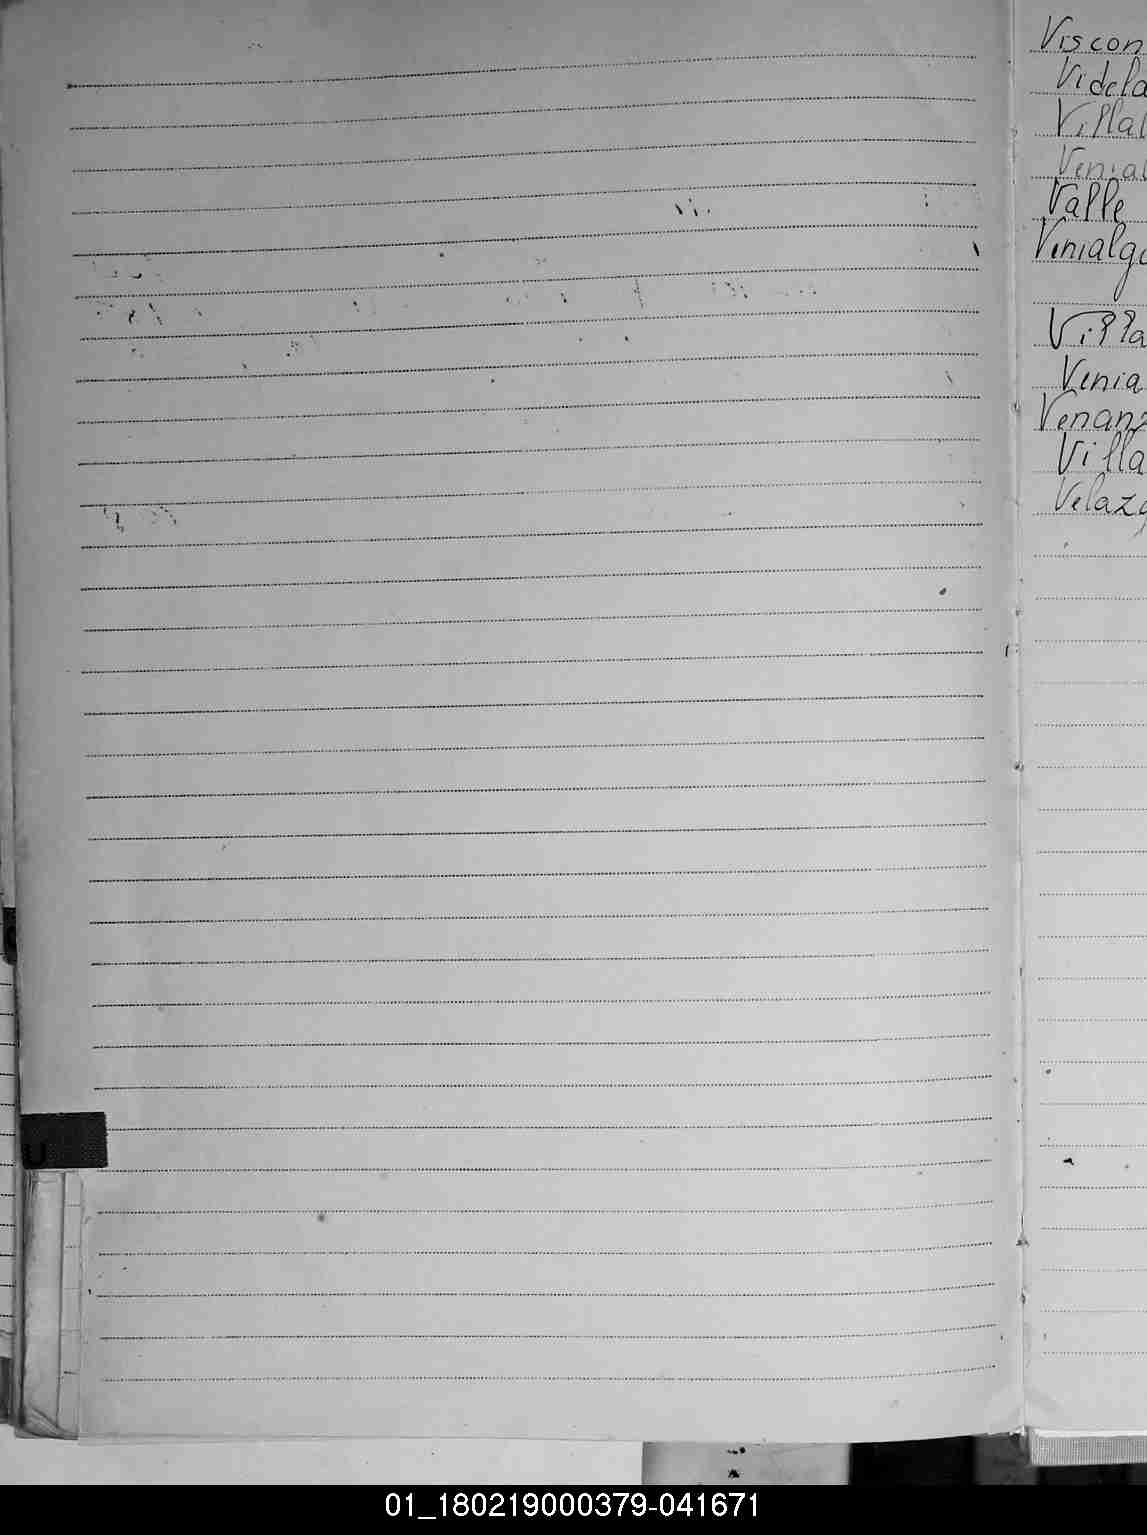 Viscon
Videla
Villal
Venial
Valle
Venialgo
Villa
Venia
Venanz
Villa
Velaz
U
01_180219000379-041671